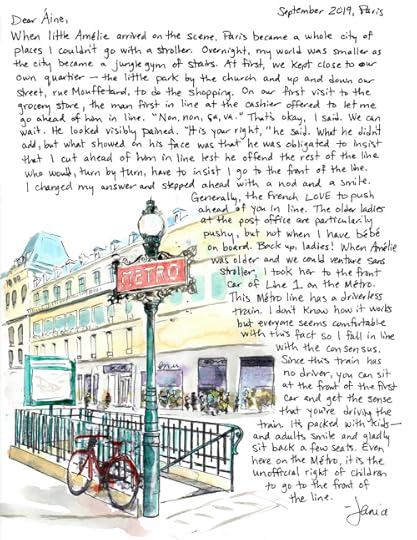 September 2019, Paris
Dear Áine,
When little Amélie arrived on the scene, Paris became a whole city of
places I couldn't go with a stroller. Overnight, my world was smaller as
the city became a jungle gym of stairs. At first, we kept close to our
own quartier — the little park by the church and up and down our
street, rue Mouffetard, to do the shopping. On our first visit to the
grocery store, the man first in line at the cashier offered to let me
go ahead of him in line. "Non, non, ça, va." That's okay, I said. We can
wait. He looked visibly pained. "It is your right," he said. What he didn't
add, but what showed on his face was that he was obligated to insist
that I cut ahead of him in line lest he offend the rest of the line
who would, turn by turn, have to insist I go to the front of the line.
I changed my answer and stepped ahead with a nod and a smile.
Generally, the French LOVE to push
ahead of you in line. The older ladies
at the post office are particularly
pushy, but not when I have bébé
on board. Back up, ladies! When Amélie
was older and we could venture sans
stroller, I took her to the front
car of Line 1 on the Métro.
This Métro line has a driverless
train. I don't know how it works
but everyone seems comfortable
with this fact so I fall in line
with the consensus.
Since this train has
no driver, you can sit
at the front of the first
car and get the sense
that you're driving the
train. It's packed with kids—
and adults smile and gladly
sit back a few seats. Even
here on the Métro, it is the
unofficial right of children
to go to the front of
the line.
-Janice
METRO